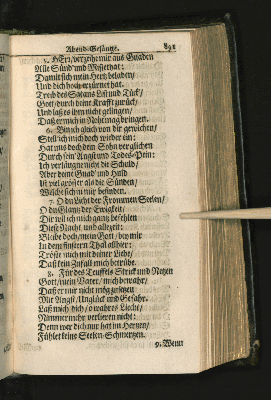 Abend-Gesänge. 891
5. HErr/ verzeihe mir aus Gnaden
Alle Sünd und Missethat:
Damit sich mein Hertz beladen/
Und dich hoch erzürnet hat.
Treib des Satans List und Tück/
Gott/ durch deine Krafft zurück/
Und laß es ihm nicht gelingen/
Daß er mich in Noht mag bringen.
6. Bin ich gleich von dir gewichen/
Stell ich mich doch wieder ein:
Hat uns doch dein Sohn verglichen
Durch sein Angst und Todes-Pein:
Ich verläugne nicht die Schuld/
Aber deine Gnad und Huld
Ist viel grösser als die Sünden/
Welche sich in mir befinden.
7. O du Licht der Frommen Seelen/
O du Glantz der Ewigkeit/
Dir wil ich mich gantz befehlen
Diese Nacht und allezeit:
Bleibe doch/ mein Gott/ bey mir
In dem finstern Thal allhier:
Tröste mich mit deiner Liebe/
Daß kein Zufall mich betrübe.
8. Für des Teuffels Strick und Netzen
Gott/ mein Vater/ mich bewahr/
Daß er mir nicht mög zusetzen
Mit Angst/ Unglück und Gefahr.
Laß mich dich/ o wahres Liecht/
Nimmermehr verlieren nicht:
Denn wer dich nur hat im Hertzen/
Fühlet keine Seelen-Schmertzen.
9. Wenn